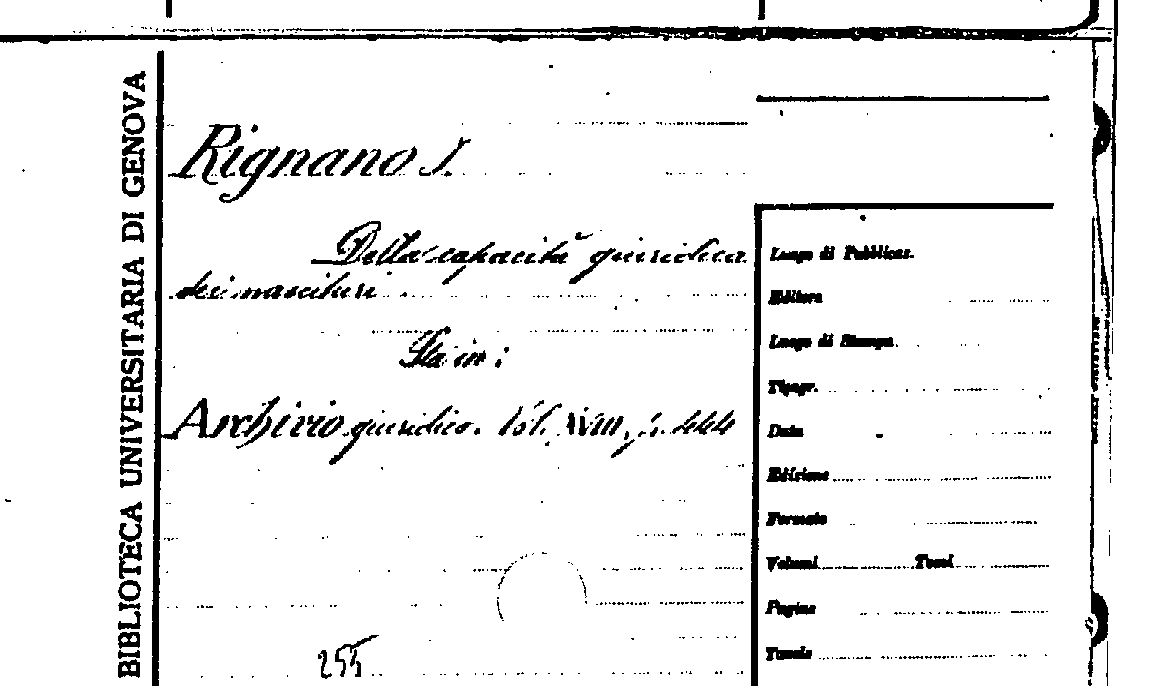 BIBLIOTECA UNIVERSITARIA DI GENOVA
Rignano I.
Della capacità giuridica
dei nascituri
Sta in:
Archivio giuridico. Vol. XVIII, p. 444
255
Luogo di Pubblicaz.
Editore
Luogo di Stampa
Tipogr.
Data
Edizione
Formato
Volumi Tomi
Pagine
Tavole